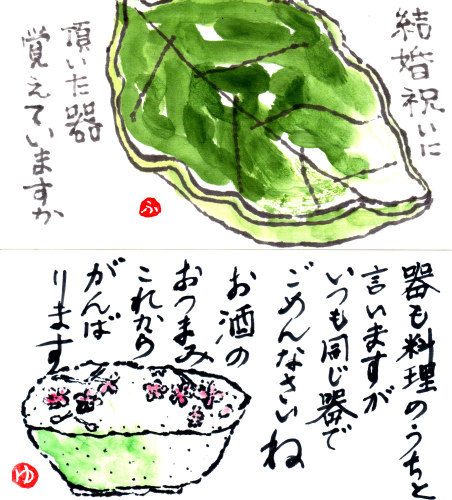 結婚祝いに
頂いた器
覚えていますか
ふ
器も料理のうちと
言いますが
いつも同じ器で
ごめんなさいね
お酒の
おつまみ
これから
がんば
ります
ゆ